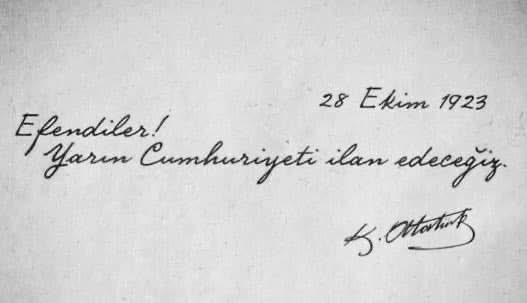 28 Ekim 1923
Efendiler!
Yarın Cumhuriyeti ilan edeceğiz.
K. Atatürk